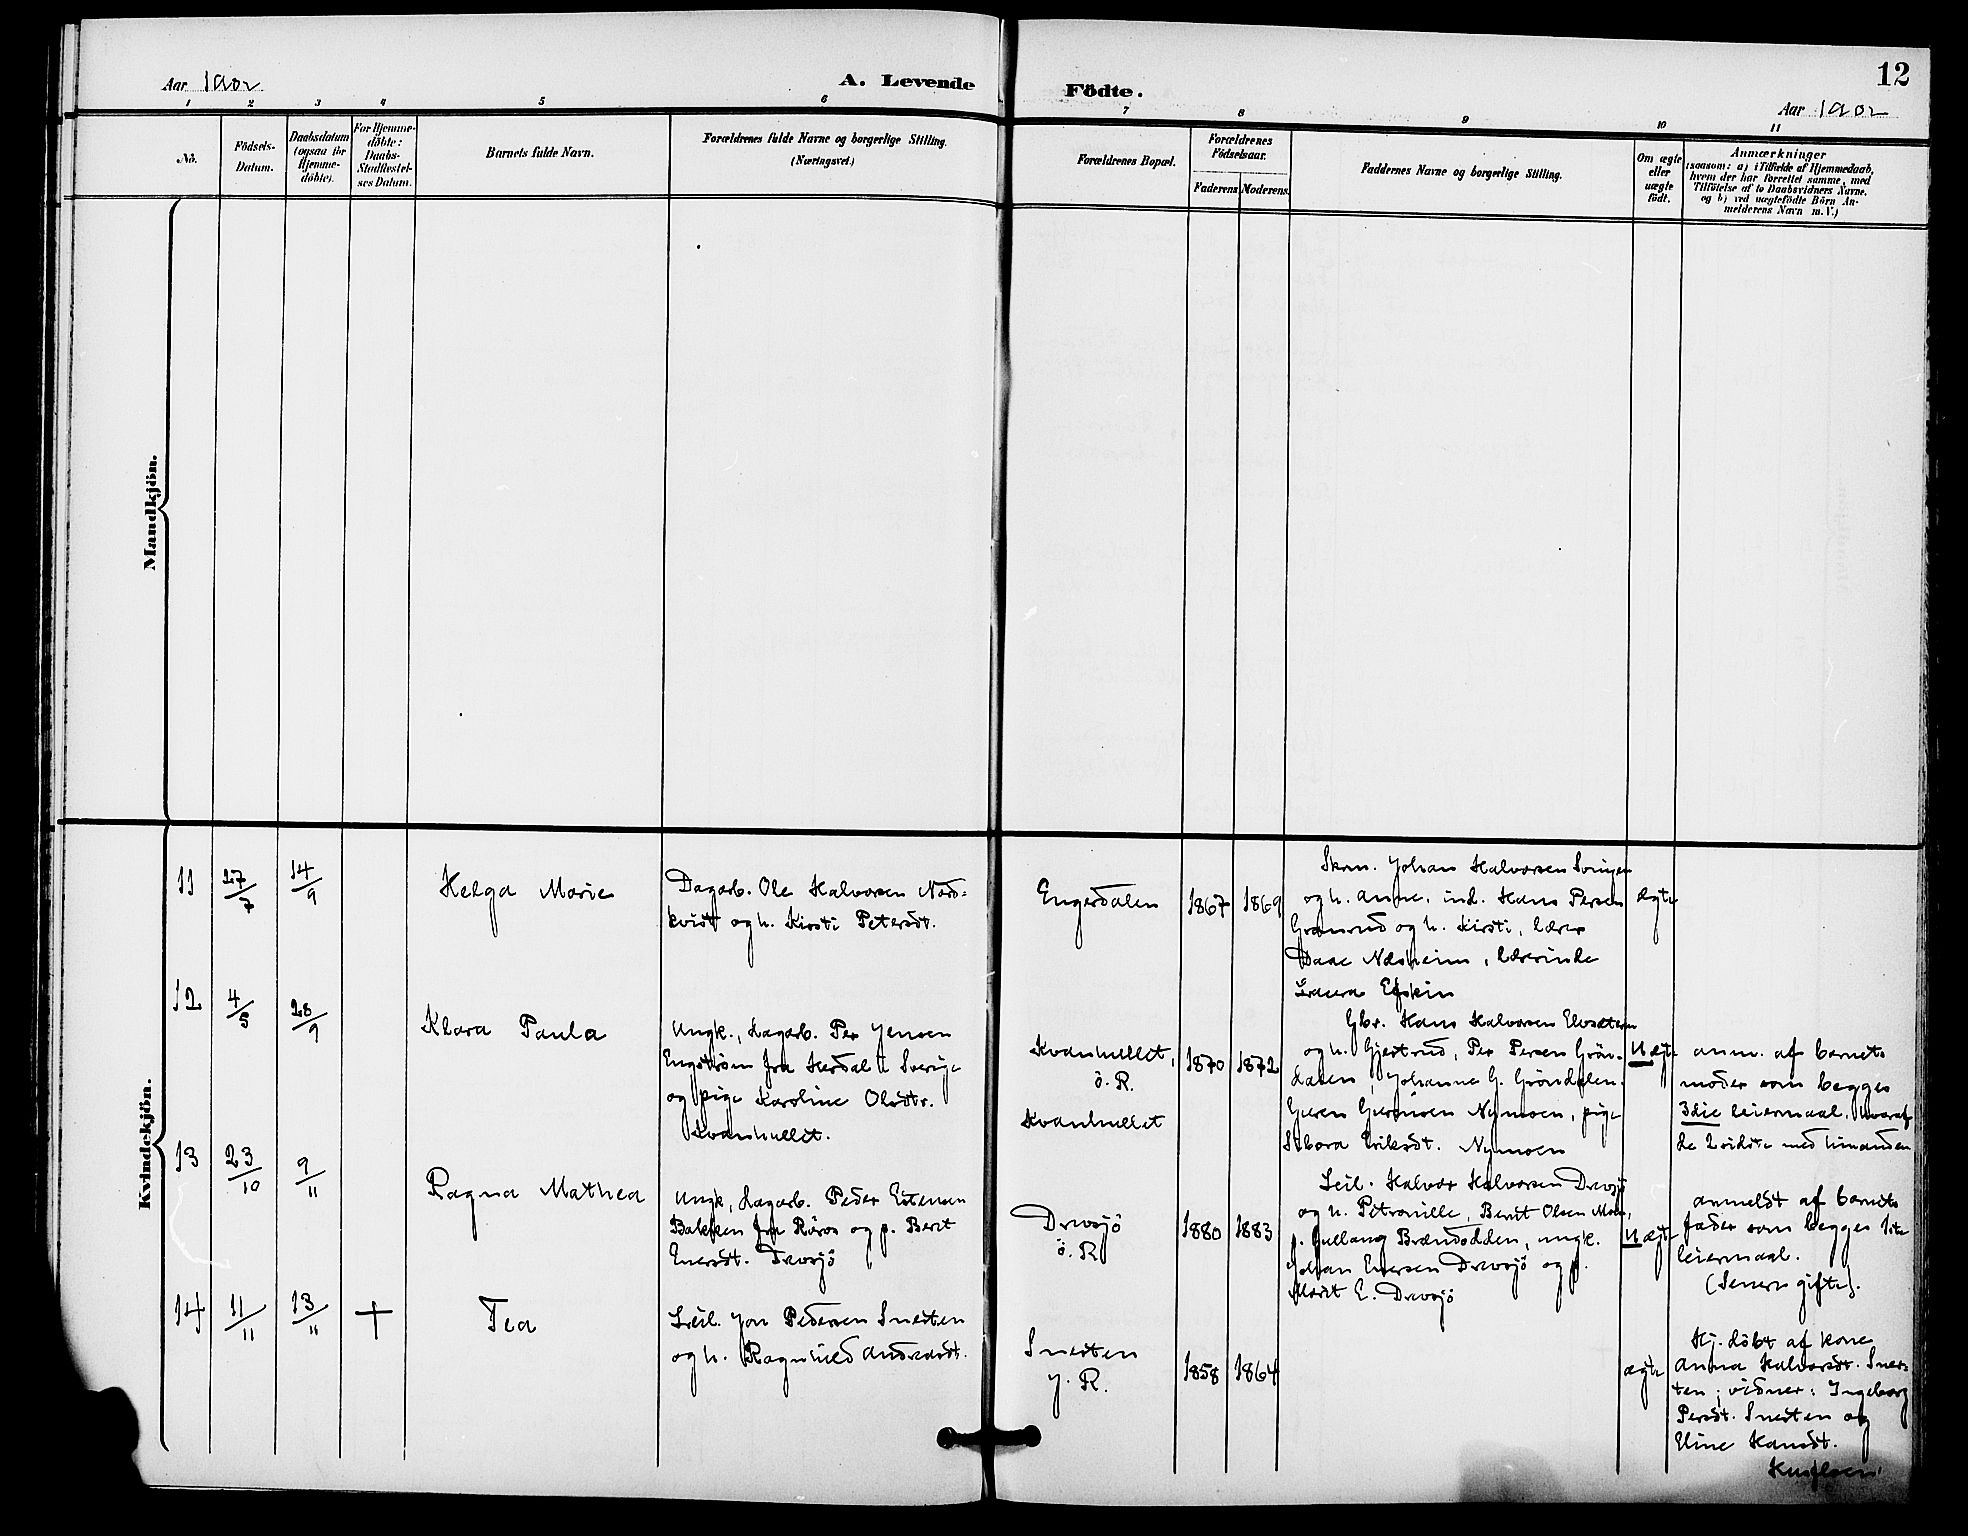 12
Aar 1902
A. Levende Födte.
Aar 1902
1 2 3 4 5 6 7 8 9 10 11
No.
Födsels-
Datum.
Daabsdatum
(ogsaa for
Hjemme-
döbte).
For Hjemme-
döbte:
Daabs-
Stadfæstel-
ses Datum.
Barnets fulde Navn.
Forældrenes fulde Navne og borgerlige Stilling.
(Næringsvei.)
Forældrenes Bopæl.
Forældrenes
Födselsaar.
Faderens Moderens.
Faddernes Navne og borgerlige Stilling.
Om ægte
eller
uægte
födt.
Anmærkninger
(saasom: a) i Tilfælde af Hjemmedaab,
hvem der har forrettet samme, med
Tilföielse af to Daabsvidners Navne.
og b) ved uægtefödte Börn An-
melderens Navn m. V.)
Mandkjön.
Kvindekjön.
11
27/7
14/9
Helga Marie
Dagarb. Ole Halvorsen Nord-
kvist og h. Kirsti Petersdt.
Engerdalen
1867
1869
Skrm. Johan Halvorsen
og h. Anne, ind. Hans Persen
Granrud og h. Kirsti, lærer
Daae Næsheim, lærerinde
Laura
ægte
12
4/5
28/9
Klara Paula
Ungk., dagarb. Per Jensen
Engström fra Herdal i Sverige
og pige Karoline Olsdtr.
Kvanhullet.
Kvanhullet,
ö. R.
Kvanhullet
1870
1872
Gbr. Hans Halvorsen
og h. Gjertrud, Per Persen Grön-
dalen, Johanne G. Gröndalen.
Nymoen, pige
Eriksdt. Nymoen
Uægte
anm. af barnets
moder som begges
3die leiermaal, hvoraf
de 2 sidste med hinanden
13
23/10
9/11
Ragna Mathea
Ungk, dagarb. Peder Estensen
Bakken fra Röros og p. Berit
Enersdt. Drevsjö
Drevsjö
ö. R
1880
1883
Leil. Halvor Halvorsen Drevsjö
og h. Petronille, Berit Olsen Moen,
p. Gullaug Brændodden, ungk.
Johan Enersen Drevsjö og p.
Marit E. Drevsjö
Uægte
anmeldt af barnets
fader som begges 1ste
leiermaal.
(Senere gifte).
14
11/11
13/11
+
Tea
Leil. Jon Pedersen Snerten
og h. Ragnhild Andreasdt.
Snerten
y. R.
1858
1864
ægte
Hj. döbt af kone
Anna Halvorsdt. Sner-
ten; vidner: Ingeborg
Persdt. Snerten og
Eline Hansdt.